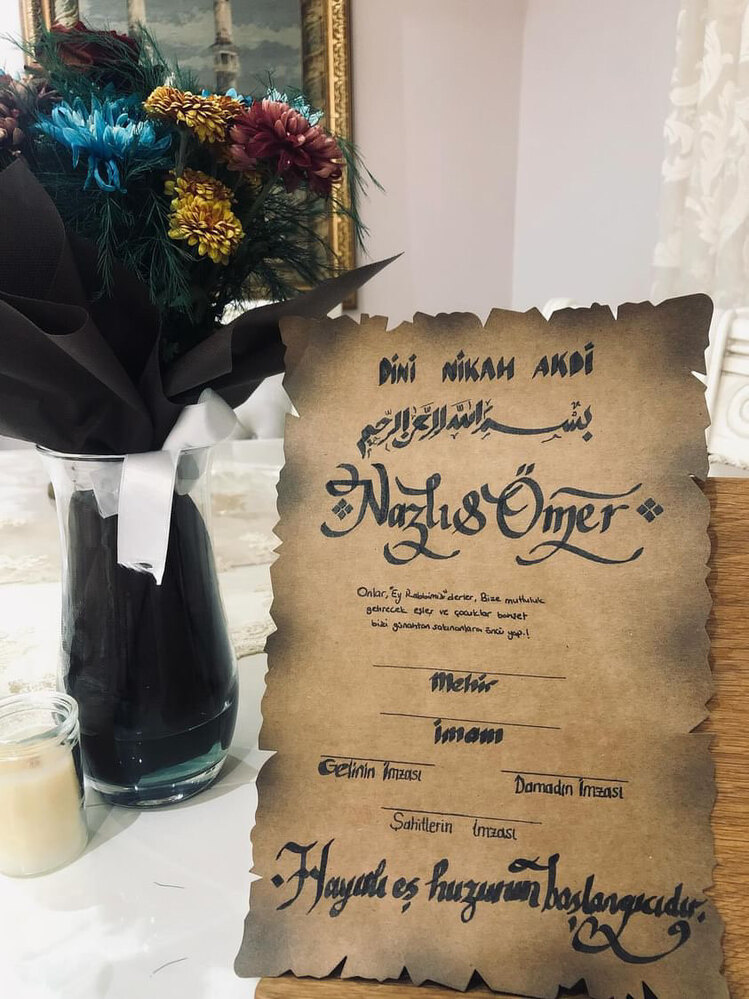 DİNİ NİKAH AKDİ
بسم الله الرحمن الرحيم
Nazlı & Ömer
Onlar, "Ey Rabbimiz" derler, Bize mutluluk
getirecek eşler ve çocuklar bahşet
bizi günahtan sakınanların öncü yap.!
Mehir
imam
Gelinin İmzası
Damadın İmzası
Şahitlerin İmzası
Hayırlı eş huzurun başlangıcıdır.